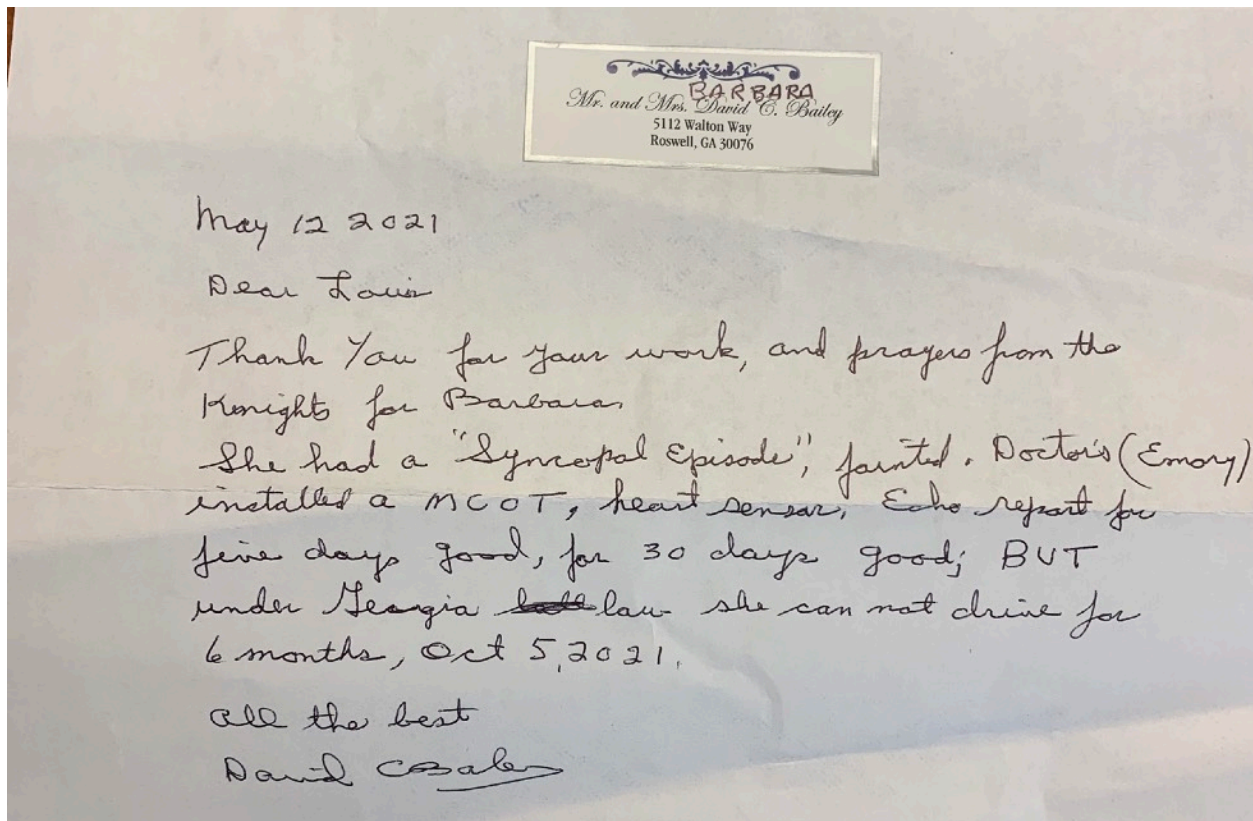 BARBARA
Mr. and Mrs. David C. Bailey
5112 Walton Way
Roswell, GA 30076
May 12 2021
Dear Louis
Thank You for your work, and prayers from the
Knights for Barbara.
She had a "Syncopal Episode", fainted. Doctor's (Emory)
installed a MCOT, heart sensor. Echo report for
five days good, for 30 days good; BUT
under Georgia law she can not drive for
6 months, Oct 5, 2021.
All the best
David C Bailey